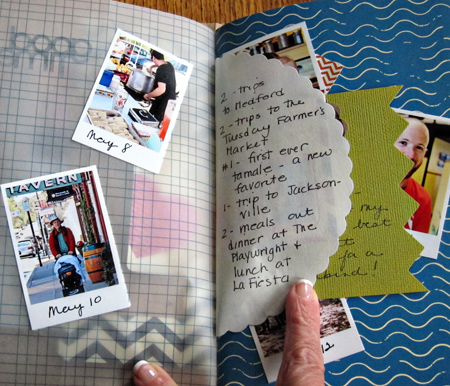 TAVERN
May 8
May 10
2 - trips
to Medford
2 - trips to the
Tuesday Farmer's
Market
#1 - first ever
tamale - a new
favorite
1 - trip to Jackson-
ville
2 - meals out
dinner at The
Playwright &
lunch at
La Fiesta
my
best